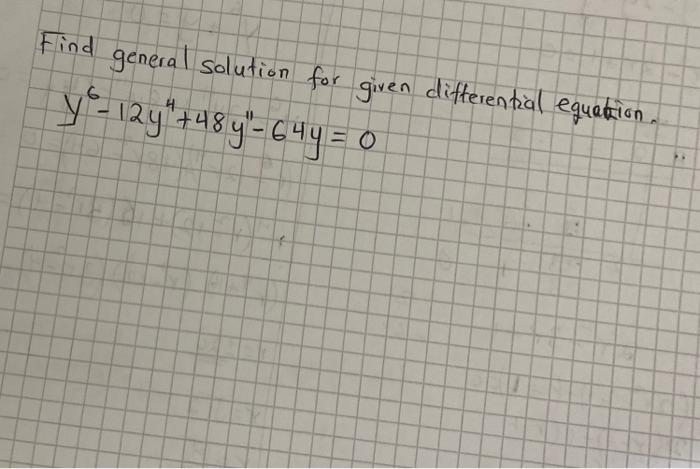 Find general solution for given differential equation.
y⁶ - 12y⁴ + 48y" - 64y = 0